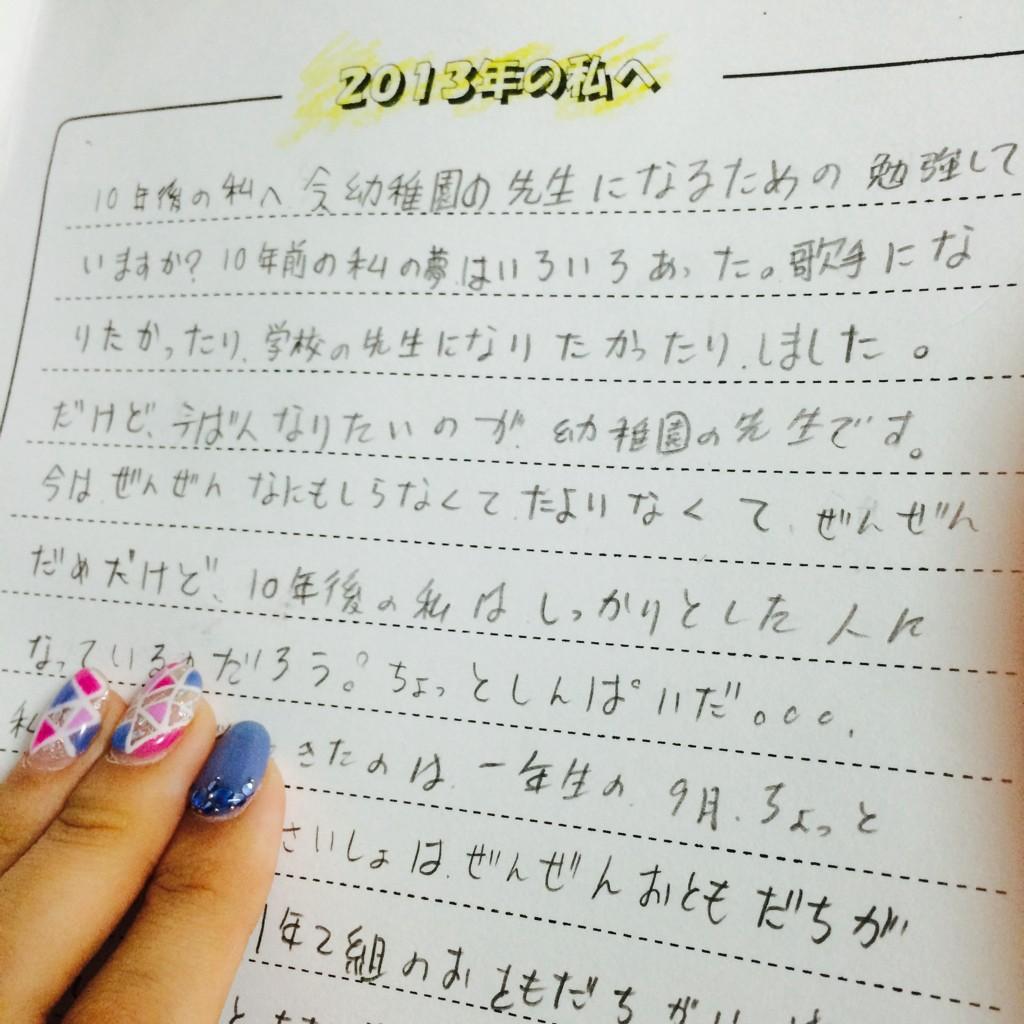 2013年の私へ
10年後の私へ 今幼稚園の先生になるための勉強して
いますか？10年前の私の夢はいろいろあった。歌手にな
りたかったり、学校の先生になりたかったり、しました。
だけど、今ばんなりたいのが幼稚園の先生です。
今はぜんぜんなにもしらなくてたよりなくて、ぜんぜん
だめだけど、10年後の私はしっかりとした人に
なっているかだろう？ちょっとしんぱいだ。。。
私 きたのは、一年生の9月、ちょっと
さいしょはぜんぜんおともだちが
1年2組のおともだちが